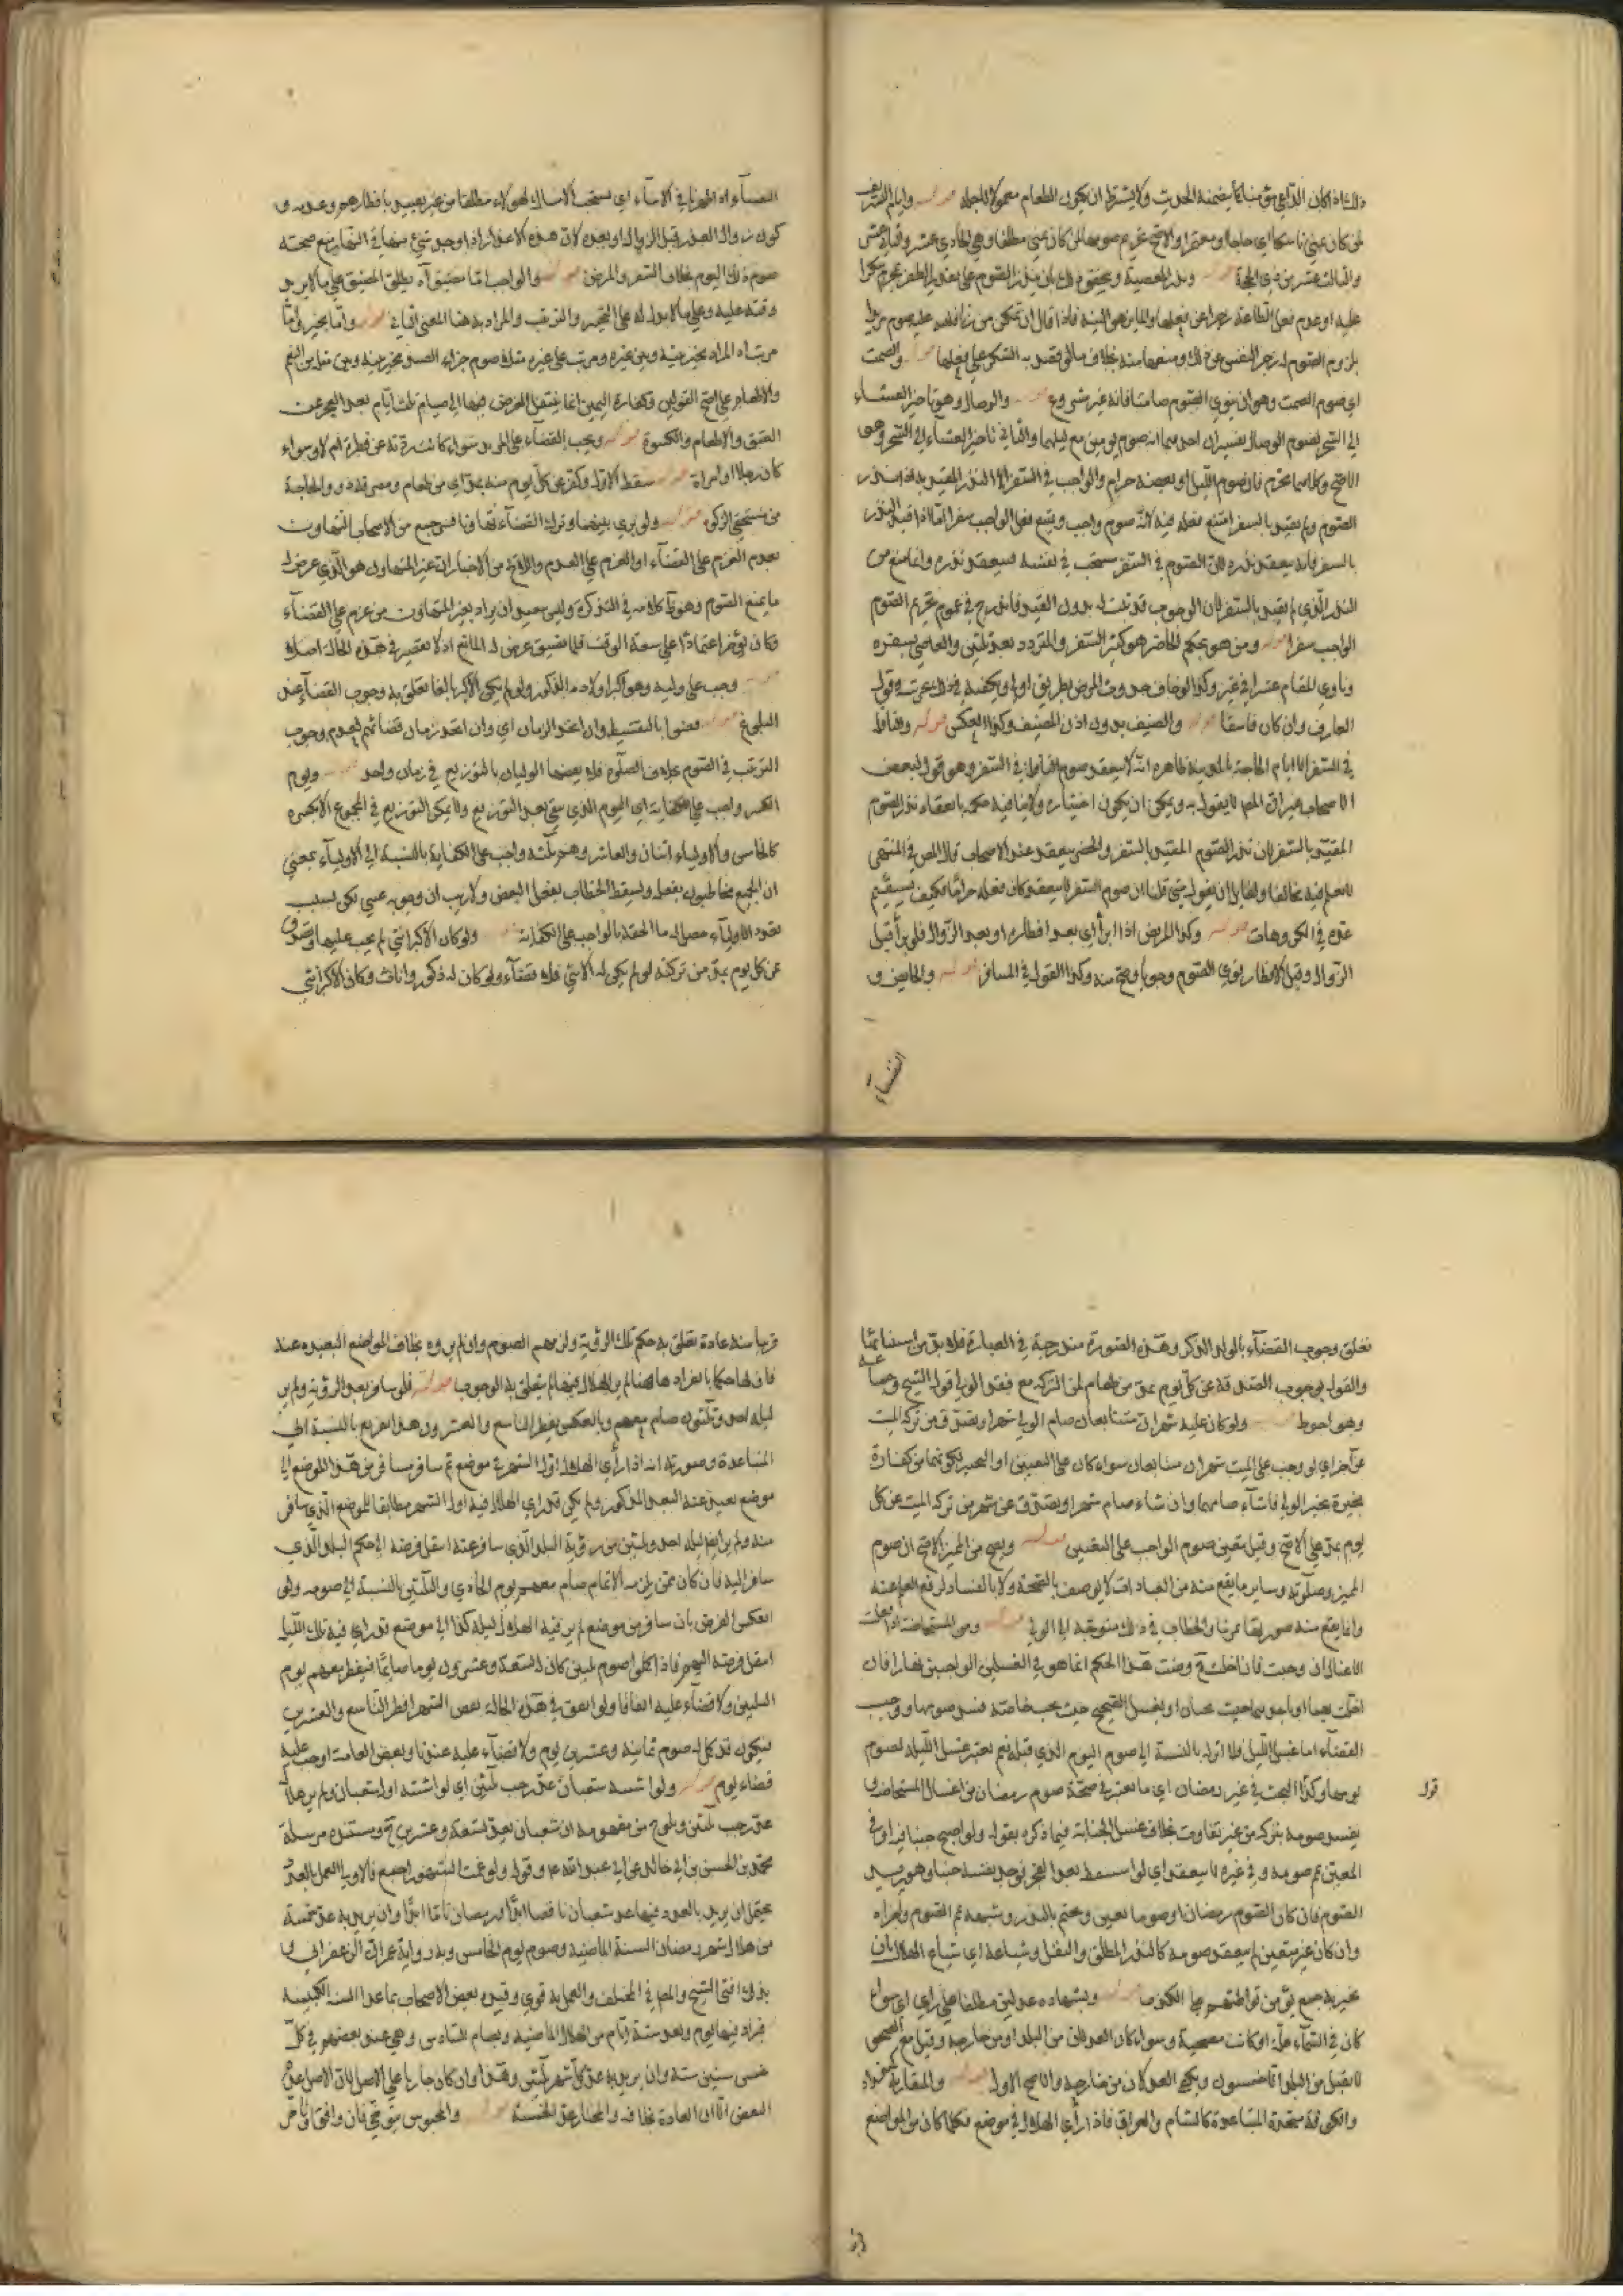 ذلك اذا كان الداعي مؤمنا كما يضمنه الحديث ولا يشترط ان يكون الطعام معمولا لاجله قوله وايام التشريق
لمن كان بمنى ناسكا اي حاجا او معتمرا والاصح تحريم صومها لمن كان بمنى مطلقا وهي الحادي عشر والثاني عشر
والثالث عشر من ذي الحجة قوله ونذر المعصية ويتحقق ذلك بان ينذر الصوم على تقدير الظفر بمحرم شكرا
عليه او عدم فعل الطاعة زجرا عن فعلها والمايز هو النية فاذا قال ان تمكن من زنا فلله عليه صوم مريدا
بلزوم الصوم له زجر النفس عن ذلك ومنعها منه بخلاف ما لو قصد به الشكر على فعلها قوله والصمت
اي صوم الصمت وهو ان ينوي الصوم صامتا فانه غير مشروع قوله والوصال وهو تاخير العشاء
الى السحر لصوم الوصال تفسيران احدهما انه صوم يومين مع ليلهما والثاني تاخير العشاء الى السحر وهو
الاصح وكلاهما محرم فان صوم الليل او بعضه حرام والواجب في السفر الا النذر المقيد به اذا نذر
الصوم ولم يقيد بالسفر امتنع فعله فيه لانه صوم واجب ويمتنع فعل الواجب سفرا اما اذا قيد النذر
بالسفر فانه ينعقد نذره لان الصوم في السفر مستحب في نفسه فينعقد نذره وانما منع من
النذر الذي لم يقيد بالسفر لان الوجوب قد ثبت له بدون القيد فاندرج في عموم تحريم الصوم
الواجب سفرا قوله ومن هو بحكم الحاضر هو كثير السفر والمتردد بعد ثلثين والعاصي بسفره
وناوي المقام عشرا في غير وكذا لو خاف حدوث المرض بطريق اولى ويكفيه في ذلك تجربته وقول
العارف وان كان فاسقا قوله والضيف بدون اذن المضيف وكذا العكس قوله والنافلة
في السفر الا ايام الحاجة بالمدينة ظاهره انه لا ينعقد صوم النافلة في السفر وهو قول لبعض
الاصحاب غير ان المص لا يقول به ويمكن ان يكون اختياره ولا ينافيه حكمه بانعقاد نذر الصوم
المقيد بالسفر لان نذر الصوم المقيد بالسفر والحضر ينعقد عند الاصحاب قال المص في المنتهى
لا نعلم فيه مخالفا ولقايل ان يقول متى قلنا ان صوم السفر لا ينعقد وكان فعله حراما فكيف يستقيم
عده في المكروهات قوله وكذا المريض اذا برأ اي بعد افطاره او بعد الزوال فلو برأ قبل
الزوال وقبل الافطار نوى الصوم وجوبا وصح منه وكذا القول في المسافر قوله والحايض و
النفساء
النفساء اذا طهرتا في الاثناء اي يستحب الامساك لهؤلاء مطلقا من غير تقييد بافطارهم وعدمه و
كون زوال العذر قبل الزوال او بعده لان هذه الاعذار اذا وجد شيء منها في النهار منع صحة
صوم ذلك اليوم بخلاف السفر والمرض قوله والواجب اما مضيق آه يطلق المضيق على ما لا يزيد
وقته عليه وعلى ما لا بدل له على التخيير والترتيب والمراد به هنا المعنى الثاني قوله واما مخير واما
مرتب آه المراد بمخير بينه وبين غيره ومرتب على غيره مثله صوم جزاء الصيد مخير بينه وبين مثله من النعم
والاطعام على اصح القولين وكفارة اليمين انما ينتقل الفرض فيها الى صيام ثلثة ايام بعد العجز عن
العتق والاطعام والكسوة قوله ويجب القضاء على المرتد سواء كانت ردته عن فطرة ام لا وسواء
كان رجلا او امراة قوله سقط الاول وكفر عن كل يوم منه بمد اي من طعام ومصرفه ذوو الحاجة
من مستحقي الزكوة قوله ولو برئ بينهما وترك القضاء تهاونا فسر جمع من الاصحاب التهاون
بعدم العزم على القضاء او العزم على العدم والمراد من الاخبار ان غير المتهاون هو الذي عرض له
ما يمنع الصوم وهو ظ كلامه في التذكرة وليس ببعيد ان يراد بغير المتهاون من عزم على القضاء
وكان يؤخر اعتمادا على سعة الوقت فلما تضيق عرض له المانع اذ لا تقصير في هذه الحالة اصلا
قوله وجب على وليه وهو اكبر اولاده الذكور ولو لم يكن الاكبر بالغا تعلق به وجوب القضاء عند
البلوغ قوله قضوا بالتقسيط وان اتحد الزمان اي وان اتحد زمان قضائهم لعدم وجوب
الترتيب في الصوم بخلاف الصلوة فلا يقضيها الوليان بالتوزيع في زمان واحد قوله ويوم
الكسر واجب على الكفاية اي اليوم الذي يبقى بعد التوزيع ولا يمكن التوزيع في المجموع الا بكسره
كالخامس والاولياء اثنان والعاشر وهم ثلثة واجب على الكفاية بالنسبة الى الاولياء بمعنى
ان الجميع مخاطبون بفعله ويسقط الخطاب بفعل البعض ولا ريب ان وجوبه عيني لكن لسبب
تعدد الاولياء حصل له ما الحقه بالواجب على الكفاية قوله ولو كان الاكبر انثى لم يجب عليها وتصدق
عن كل يوم بمد من تركته لو لم يكن له الا انثى فلا قضاء ولو كان له ذكور واناث وكان الاكبر انثى
تعلق وجوب القضاء بالولد الذكر وهذه الصورة مندرجة في العبارة فلا بد من استثنائها
والقول بوجوب الصدقة عن كل يوم بمد من طعام من التركة مع فقد الولي قول الشيخ وجماعة
وهو احوط قوله ولو كان عليه شهران متتابعان صام الولي شهرا وتصدق من تركة الميت
عن آخر اي لو وجب على الميت شهران متتابعان سواء كان على التعيين او التخيير لكونهما من كفارة
مخيرة تخير الولي فان شاء صامهما وان شاء صام شهرا وتصدق عن شهر من تركة الميت عن كل
يوم بمد على الاصح وقيل يتعين صوم الواجب على التعيين قوله ويصح من المميز الاصح ان صوم
المميز وصلوته وساير ما يقع منه من العبادات لا يوصف بالصحة ولا بالفساد لرفع القلم عنه
وانما يقع منه صوريا تمرينا والخطاب في ذلك متوجه الى الولي قوله ومن المستحاضة اذا فعلت
الاغسال ان وجبت فان اخلت آه وضعت هذا الحكم انما هو في الغسلين الواجبين نهارا فان
اخلت بهما او باحدهما حيث يجبان او بغسل الصبح حيث يجب خاصة فسد صومها ووجب
القضاء اما غسل الليل فلا اثر له بالنسبة الى صوم اليوم الذي قبله نعم يعتبر غسل الليلة لصوم
يومها وكذا البحث في غير رمضان اي ما يعتبر في صحة صوم رمضان من اغسال المستحاضة
يفسد صومه بتركه من غير تفاوت بخلاف غسل الجنابة فيما ذكره بقوله ولو اصبح جنبا فيه او في
المعين تم صومه وفي غيره لا ينعقد اي لو استيقظ بعد الفجر فوجد نفسه جنبا وهو يريد
الصوم فان كان الصوم رمضان او صوما تعين وحتم بالنذر وشبهه تم الصوم واجزاه
وان كان غير متعين لم ينعقد صومه كالنذر المطلق والنفل وشياعه اي شياع الهلال بان
يخبر به جمع يؤمن تواطؤهم على الكذب قوله وبشهادة عدلين مطلقا على راي اي سواء
كان في السماء علة او كانت مصحية وسواء كان العدلان من البلد او من خارجه وقيل مع الصحو
لا يقبل من البلد الا خمسون ويكفي العدلان من خارجه والاصح الاول قوله والمتقاربة كبغداد
والكوفة متحدة المتباعدة كالشام والعراق فاذا رأي الهلال في موضع فكلما كان من المواضع
قوله
قريبا منه عادة تعلق به حكم تلك الرؤية ولزمهم الصوم وان لم يروه بخلاف المواضع البعيدة عنه
فان لها حكما بانفرادها فما لم ير الهلال فيها لم يتعلق بها الوجوب قوله فلو سافر بعد الرؤية ولم ير
ليلة احد وثلثين صام معهم وبالعكس يفطر التاسع والعشرون هذا تفريع بالنسبة الى
المتباعدة وصورته انه اذا رأي الهلال اول الشهر في موضع ثم سافر مسافر من هذا الموضع الى
موضع بعيد عنه البعد المذكور ولم يكن قد رأي الهلال فيه اول الشهر مطابقا للموضع الذي سافر
منه ولم ير ايضا ليلة احد وثلثين من رؤية البلد الذي سافر عنه انتقل فرضه الى حكم البلد الذي
سافر اليه فان كان ممن يلزمه الاتمام صام معهم يوم الحادي والثلثين بالنسبة الى صومه ولو
انعكس الفرض بان سافر من موضع لم ير فيه الهلال ليلة كذا الى موضع قد رأي فيه تلك الليلة
انتقل فرضه اليهم فاذا اكملوا صوم ثلثين كان له تسعة وعشرون يوما صائما فيفطر معهم يوم
الثلثين ولا قضاء عليه اتفاقا ولو اتفق في هذه الحالة نقص الشهر افطر التاسع والعشرين
فيكون قد كمل له صوم ثمانية وعشرين يوم ولا قضاء عليه عندنا وبعض العامة اوجب عليه
قضاء يوم قوله ولو اشتبه شعبان عد رجب ثلثين اي لو اشتبه اول شعبان ولم ير هلاله
عد رجب ثلثين ويلوح من مفهومه ان شعبان يعد تسعة وعشرين آه ومستنده مرسلة
محمد بن الحسين بن ابي خالد عن ابي عبد الله ع وقوله ولو غمت الشهور اجمع فالاولى العمل بالعدد
يحتمل ان يريد بالعدد فيها عد شعبان ناقصا ابدا ورمضان تاما ابدا وان يريد به عد خمسة
من هلال شهر رمضان السنة الماضية وصوم يوم الخامس وبه رواية عمران الزعفراني و
بذلك افتى الشيخ والمص في المختلف والعمل به قوي وقيده بعض الاصحاب بما عدا السنة الكبيسة
فزاد فيها يوم وتعد ستة ايام من الهلال الماضية ويصام السادس وهي عند بعضهم في كل
خمس سنين سنة وان يريد به عد كل شهر ثلثين وهذا وان كان جاريا على الاصل لان الاصل عدم
النقص الا ان العادة بخلافه والمختار عد الخمسة قوله والمحبوس يتوخى فان وافق او تاخر